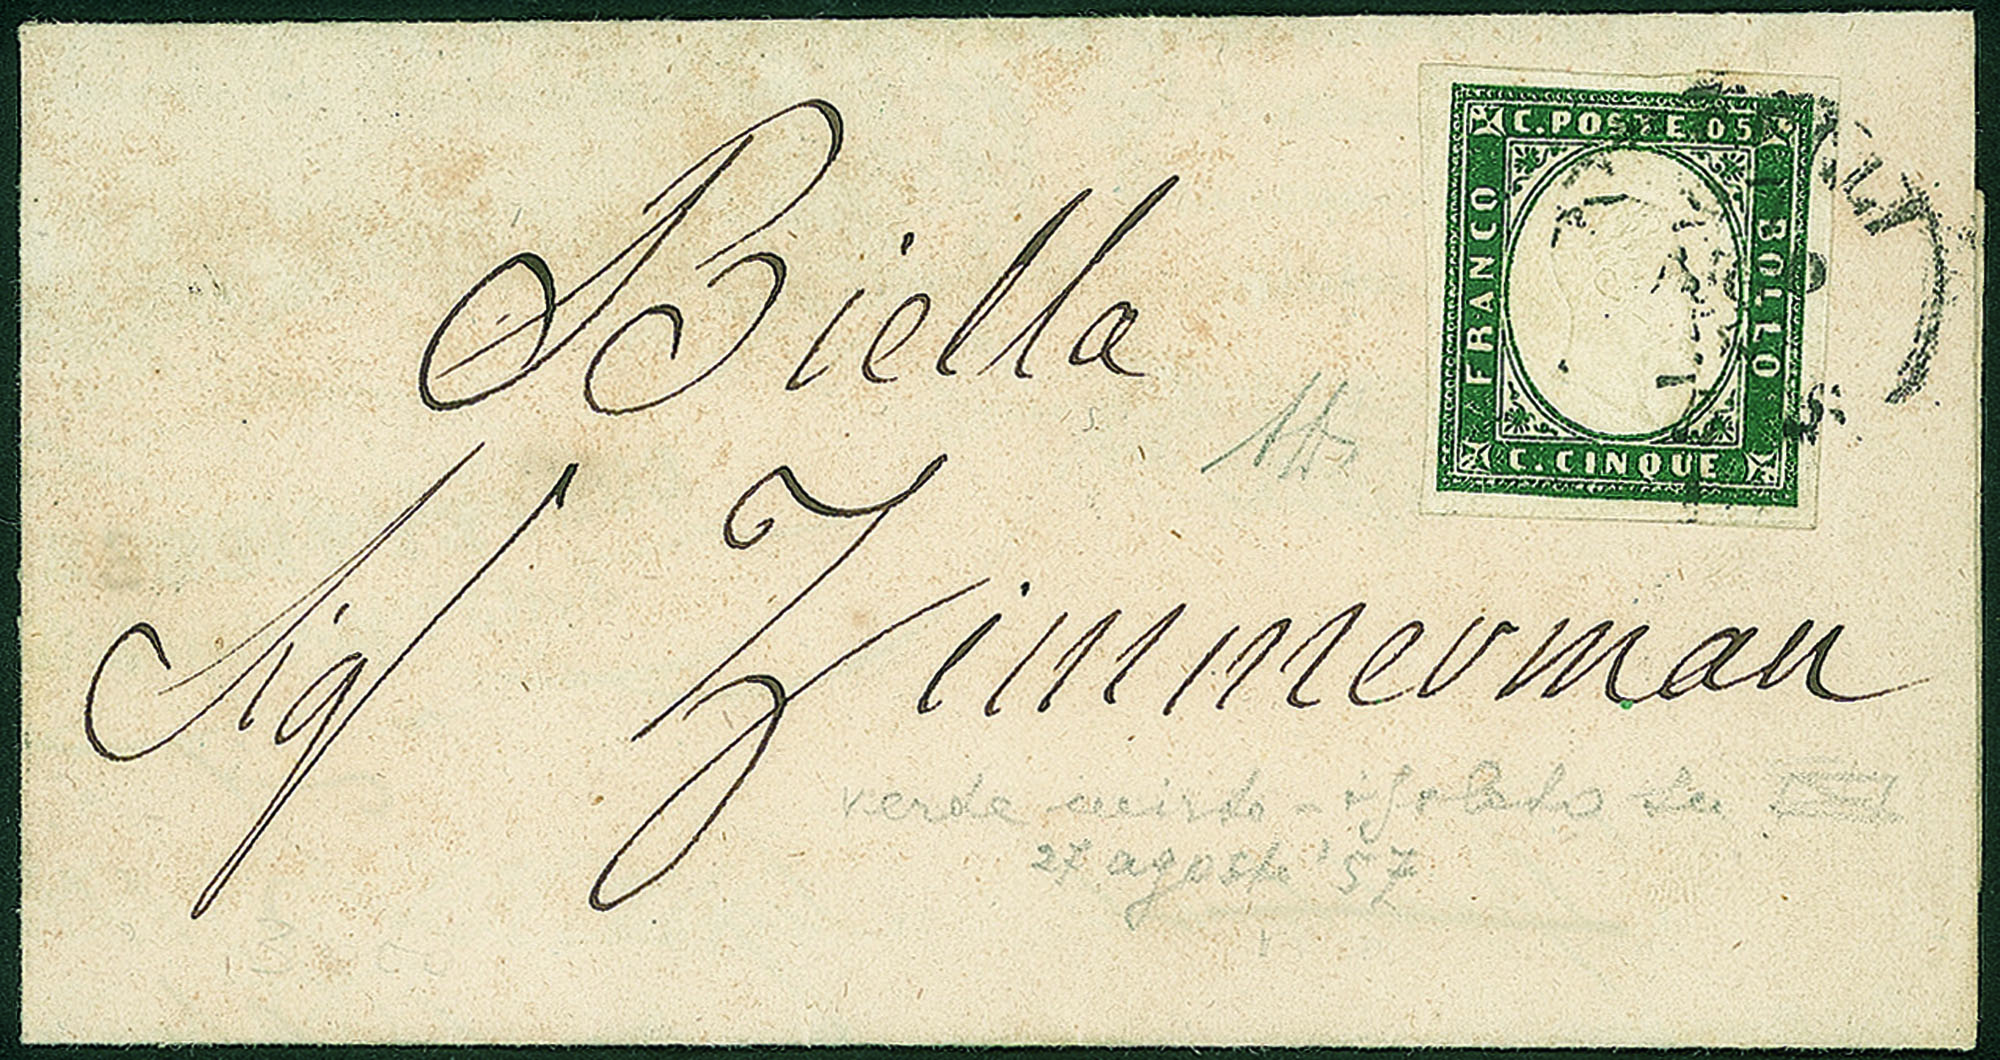 C. POSTE 05
FRANCO
BOLLO
C. CINQUE
Biella
Sig Zimmerman
verde mirto - isolato su
27 agosto '57